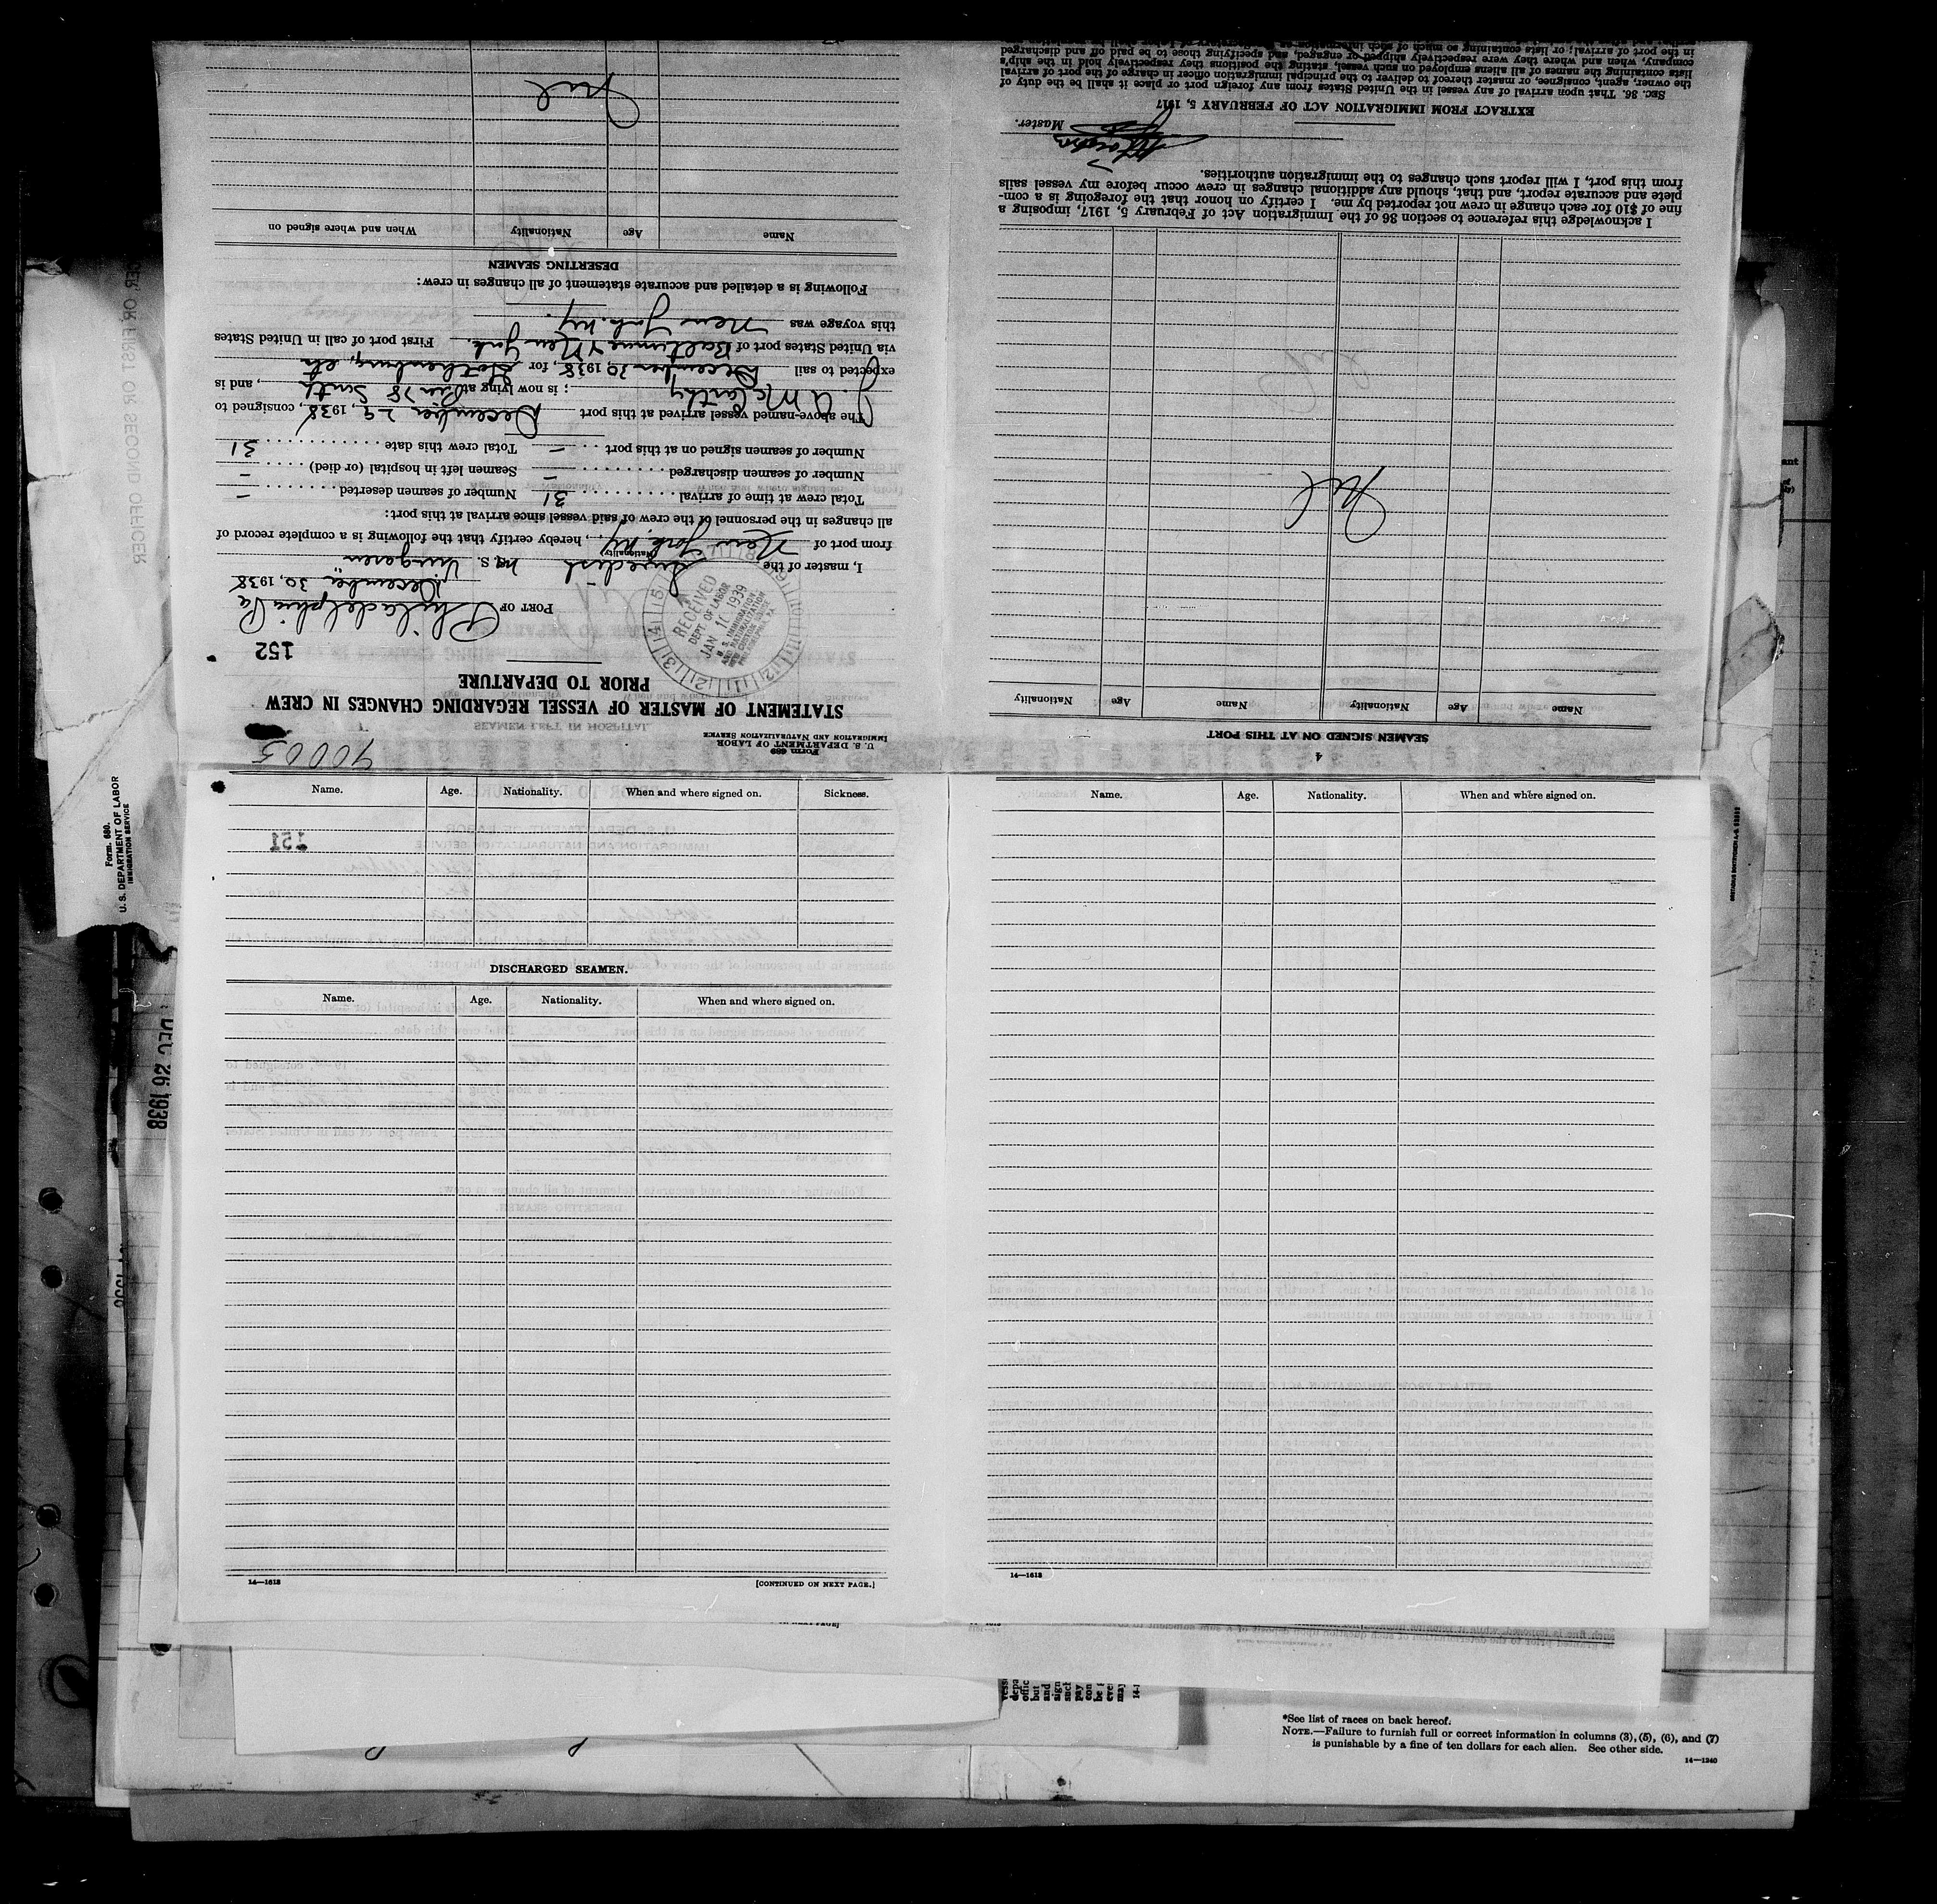 40005
Form 689
U. S. DEPARTMENT OF LABOR
IMMIGRATION AND NATURALIZATION SERVICE
STATEMENT OF MASTER OF VESSEL REGARDING CHANGES IN CREW
PRIOR TO DEPARTURE
152
PORT OF Philadelphia Pa
December 30, 1938
I, master of the Swedish M. S. Vingaren
(Nationality)
from port of New York NY, hereby certify that the following is a complete record of
all changes in the personnel of the crew of said vessel since arrival at this port:
Total crew at time of arrival 31 Number of seamen deserted –
Number of seamen discharged – Seamen left in hospital (or died) –
Number of seamen signed on at this port – Total crew this date 31
The above-named vessel arrived at this port December 29, 1938, consigned to
J. A. McCarthy; is now lying at Pier 78 South, and is
expected to sail December 30 1938, for Gothenburg, etc
via United States port of Baltimore & New York. First port of call in United States
this voyage was New York. NY.
Following is a detailed and accurate statement of all changes in crew:
DESERTING SEAMEN
Name Age Nationality When and where signed on
Nil
RECEIVED
DEPT. OF LABOR
JAN 10 1939
U. S. IMMIGRATION
AND NATURALIZATION
SERVICE
NEW CUSTOM HOUSE
PHILADELPHIA, PA.
4
SEAMEN SIGNED ON AT THIS PORT
Name Age Nationality Name Age Nationality
Nil
I acknowledge this reference to section 36 of the Immigration Act of February 5, 1917, imposing a
fine of $10 for each change in crew not reported by me. I certify on honor that the foregoing is a com-
plete and accurate report, and that, should any additional changes in crew occur before my vessel sails
from this port, I will report such changes to the immigration authorities.
Master.
EXTRACT FROM IMMIGRATION ACT OF FEBRUARY 5, 1917
SEC. 36. That upon arrival of any vessel in the United States from any foreign port or place it shall be the duty of
the owner, agent, consignee, or master thereof to deliver to the principal immigration officer in charge of the port of arrival
lists containing the names of all aliens employed on such vessel, stating the positions they respectively hold in the ship's
company, when and where they were respectively shipped or engaged, and specifying those to be paid off and discharged
in the port of arrival; or lists containing so much of such information as
Name. Age. Nationality. When and where signed on. Sickness.
151
DISCHARGED SEAMEN.
Name. Age. Nationality. When and where signed on.
14—1613 [CONTINUED ON NEXT PAGE.]
Name. Age. Nationality. When and where signed on.
14—1613
Form. 680.
U. S. DEPARTMENT OF LABOR
IMMIGRATION SERVICE
CER, OR FIRST OR SECOND OFFICER
DEC 26 1938
*See list of races on back hereof.
NOTE.—Failure to furnish full or correct information in columns (3), (5), (6), and (7)
is punishable by a fine of ten dollars for each alien. See other side.
14—1240